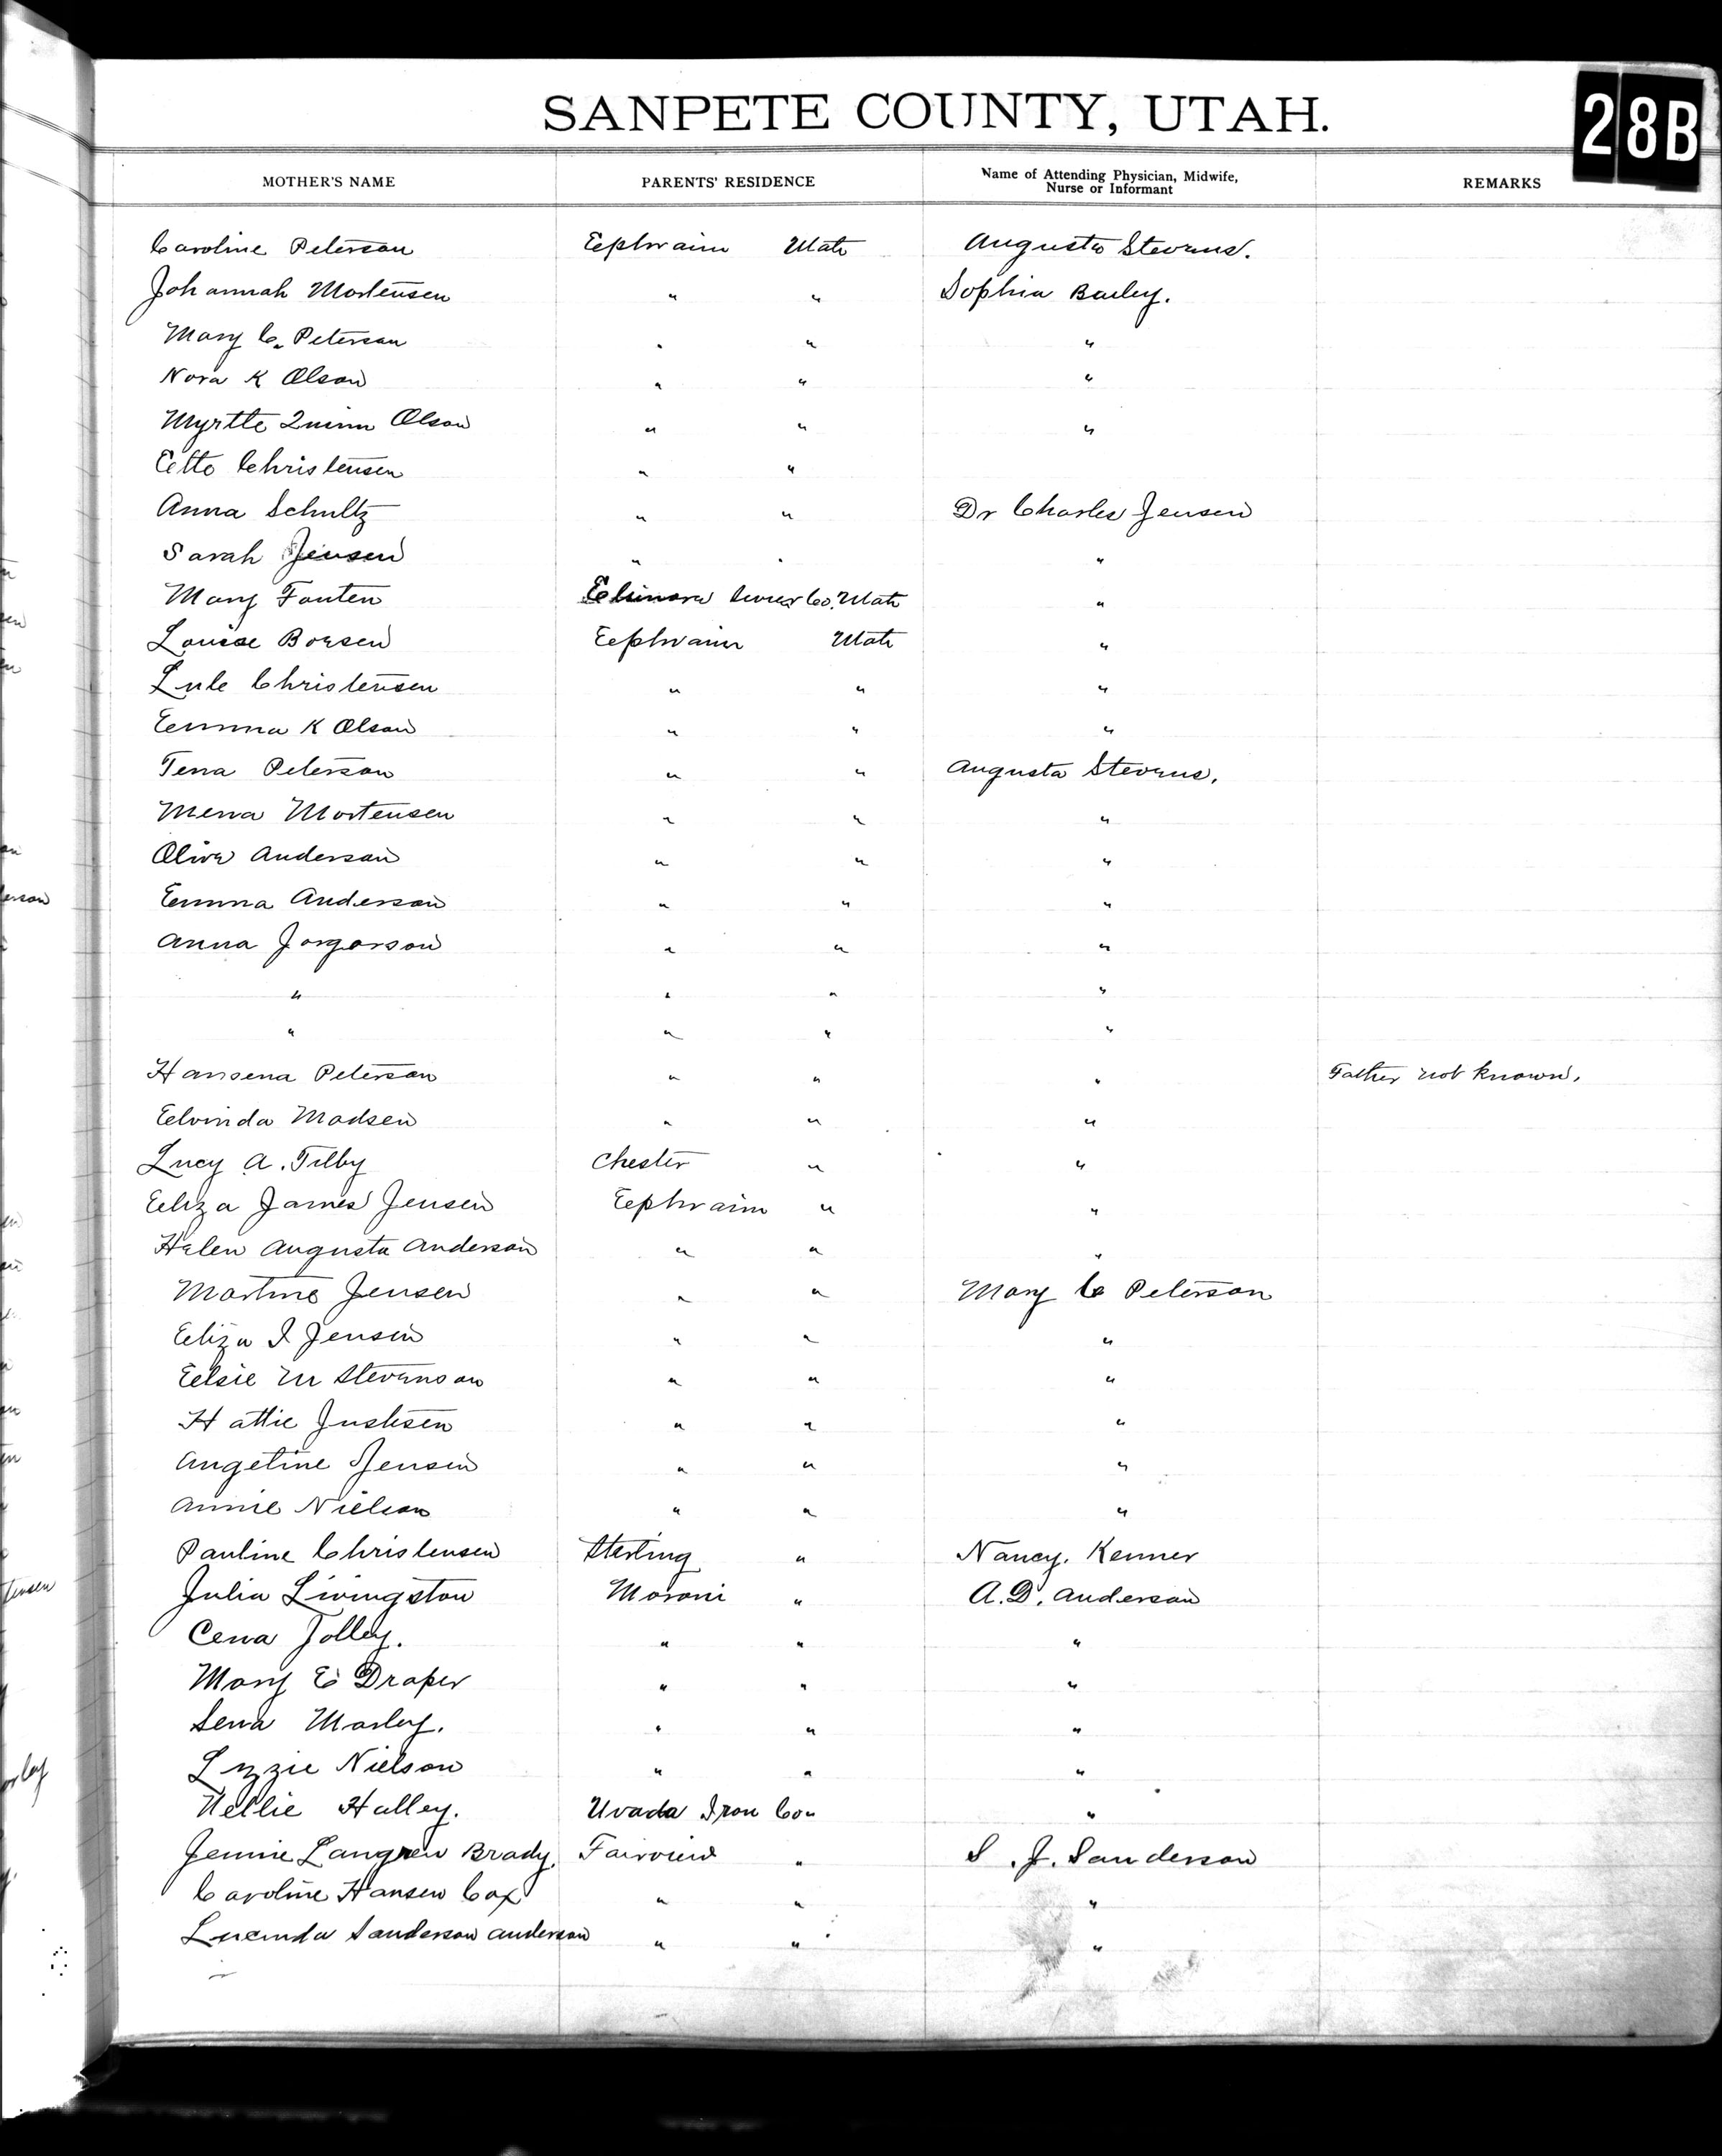 SANPETE COUNTY, UTAH.
28B
MOTHER'S NAME PARENTS' RESIDENCE Name of Attending Physician, Midwife, Nurse or Informant REMARKS
Caroline Peterson Ephraim Utah Augusta Stevens.
Johannah Mortensen " " Sophia Bailey.
Mary C. Peterson " " "
Nora K Olson " " "
Myrtle Quinn Olson " " "
Etta Christensen " "
Anna Schultz " " Dr Charles Jensen
Sarah Jensen " " "
Mary Fauten Elsinore Sevier Co. Utah "
Louise Boesen Ephraim Utah "
Lule Christensen " " "
Emma K Olson " " "
Tena Peterson " " Augusta Stevens.
Mena Mortensen " " "
Olive Anderson " " "
Emma Anderson " " "
Anna Jorgerson " " "
" " " "
" " " "
Hansena Peterson " " " Father not known.
Elvinda Madsen " " "
Lucy A. Tilby Chester " "
Eliza James Jensen Ephraim " "
Helen Augusta Anderson " " "
Martine Jensen " " Mary C Peterson
Eliza I Jensen " " "
Elsie M Stevenson " " "
Hattie Justesen " " "
Angeline Jensen " " "
Annie Nielson " " "
Pauline Christensen Sterling " Nancy. Kenner
Julia Livingston Moroni " A.D. Anderson
Cena Jolley. " " "
Mary E Draper " " "
Sena Morley. " " "
Lizzie Nielson " " "
Nellie Halley. Uvada Iron Co " "
Jennie Langren Brady. Fairview " S. J. Sanderson
Caroline Hansen Cox " " "
Lucinda Sanderson Anderson " " "